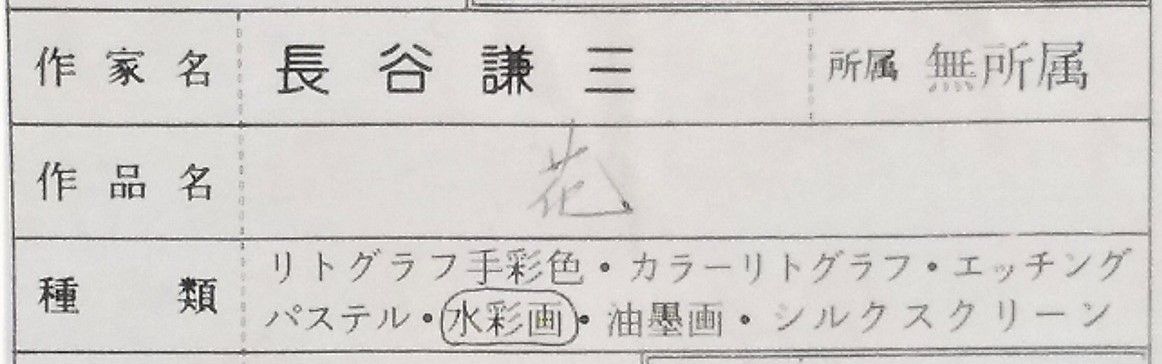 作家名 長谷謙三 所属 無所属
作品名 花
種類 リトグラフ手彩色・カラーリトグラフ・エッチング
パステル・水彩画・油墨画・シルクスクリーン